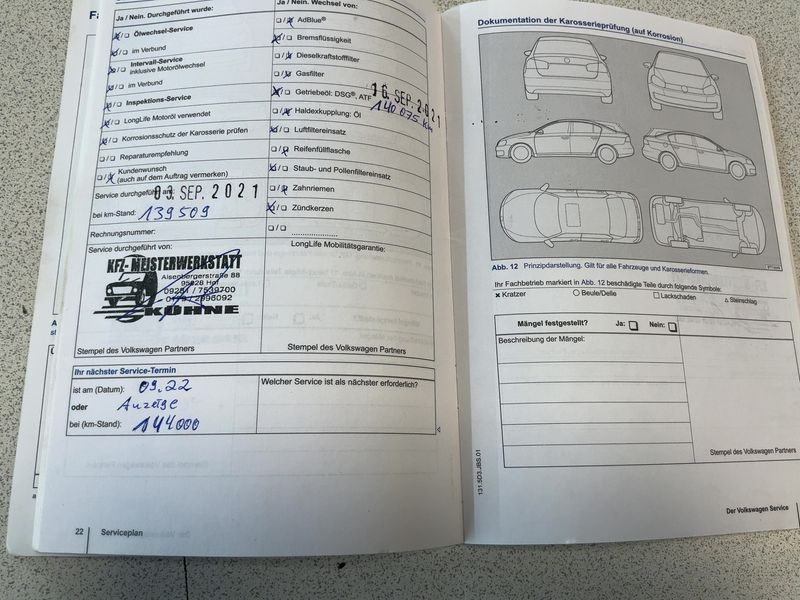 Ja / Nein. Durchgeführt wurde:
Ölwechsel-Service
im Verbund
Intervall-Service
inklusive Motorölwechsel
im Verbund
Inspektions-Service
LongLife Motoröl verwendet
Korrosionsschutz der Karosserie prüfen
Reparaturempfehlung
Kundenwunsch
(auch auf dem Auftrag vermerken)
Service durchgeführt am:
03. SEP. 2021
bei km-Stand: 139509
Rechnungsnummer:
Service durchgeführt von:
KFZ-MEISTERWERKSTATT
Alsenbergerstraße 88
95028 Hof
09281 / 7539700
KÜHNE
Stempel des Volkswagen Partners
Ja / Nein. Wechsel von:
AdBlue®
Bremsflüssigkeit
Dieselkraftstofffilter
Gasfilter
Getriebeöl: DSG®, ATF
16. SEP. 2021
140 075 km
Haldexkupplung: Öl
Luftfiltereinsatz
Reifenfüllflasche
Staub- und Pollenfiltereinsatz
Zahnriemen
Zündkerzen
LongLife Mobilitätsgarantie:
Stempel des Volkswagen Partners
Ihr nächster Service-Termin
ist am (Datum): 09.22
oder Anzeige
bei (km-Stand): 144000
Welcher Service ist als nächster erforderlich?
22 Serviceplan
Dokumentation der Karosserieprüfung (auf Korrosion)
Abb. 12 Prinzipdarstellung. Gilt für alle Fahrzeuge und Karosserieformen.
Ihr Fachbetrieb markiert in Abb. 12 beschädigte Teile durch folgende Symbole:
× Kratzer ○ Beule/Delle □ Lackschaden △ Steinschlag
Mängel festgestellt? Ja: Nein:
Beschreibung der Mängel:
Stempel des Volkswagen Partners
131.5D3.JBS.01
Der Volkswagen Service